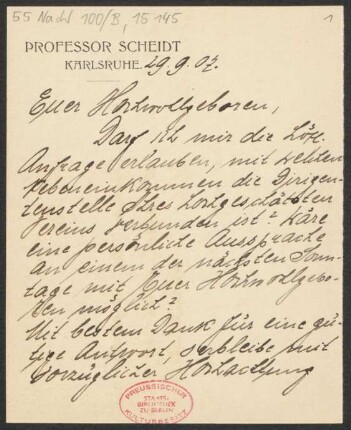 55 Nachl 100/B, 15 145
1
PROFESSOR SCHEIDT
KARLSRUHE. 29.9.07.
Euer Hochwollgeboren,
Darf ich mir die höfl.
Anfrage erlauben, mit welchem
Nebeneinkommen die Dirigen-
tenstelle Ihres hochgeschätzten
Vereins verbunden ist? Wäre
eine persönliche Aussprache
an einem der nächsten Sonn-
tage mit Euer Hochwollgebo-
ren möglich?
Mit bestem Dank für eine gü-
tige Antwort, verbleibe mit
vorzüglicher Hochachtung
PREUSSISCHER
STAATS-
BIBLIOTHEK
ZU BERLIN
KULTURBESITZ